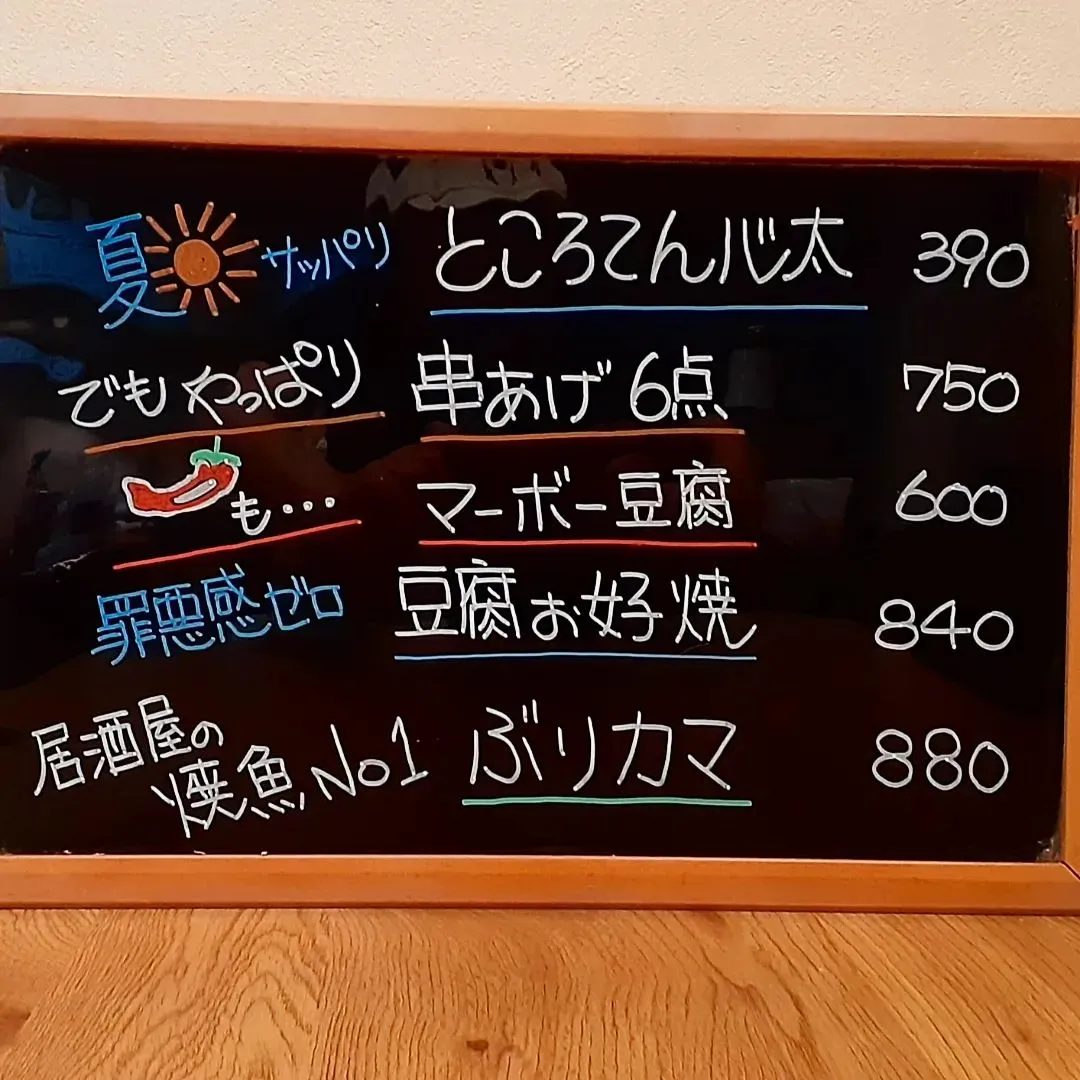 夏 サッパリ ところてん 心太 390
でもやっぱり 串あげ 6点 750
も... マーボー豆腐 600
罪悪感ゼロ 豆腐お好焼 840
居酒屋の
焼魚No1 ぶりカマ 880